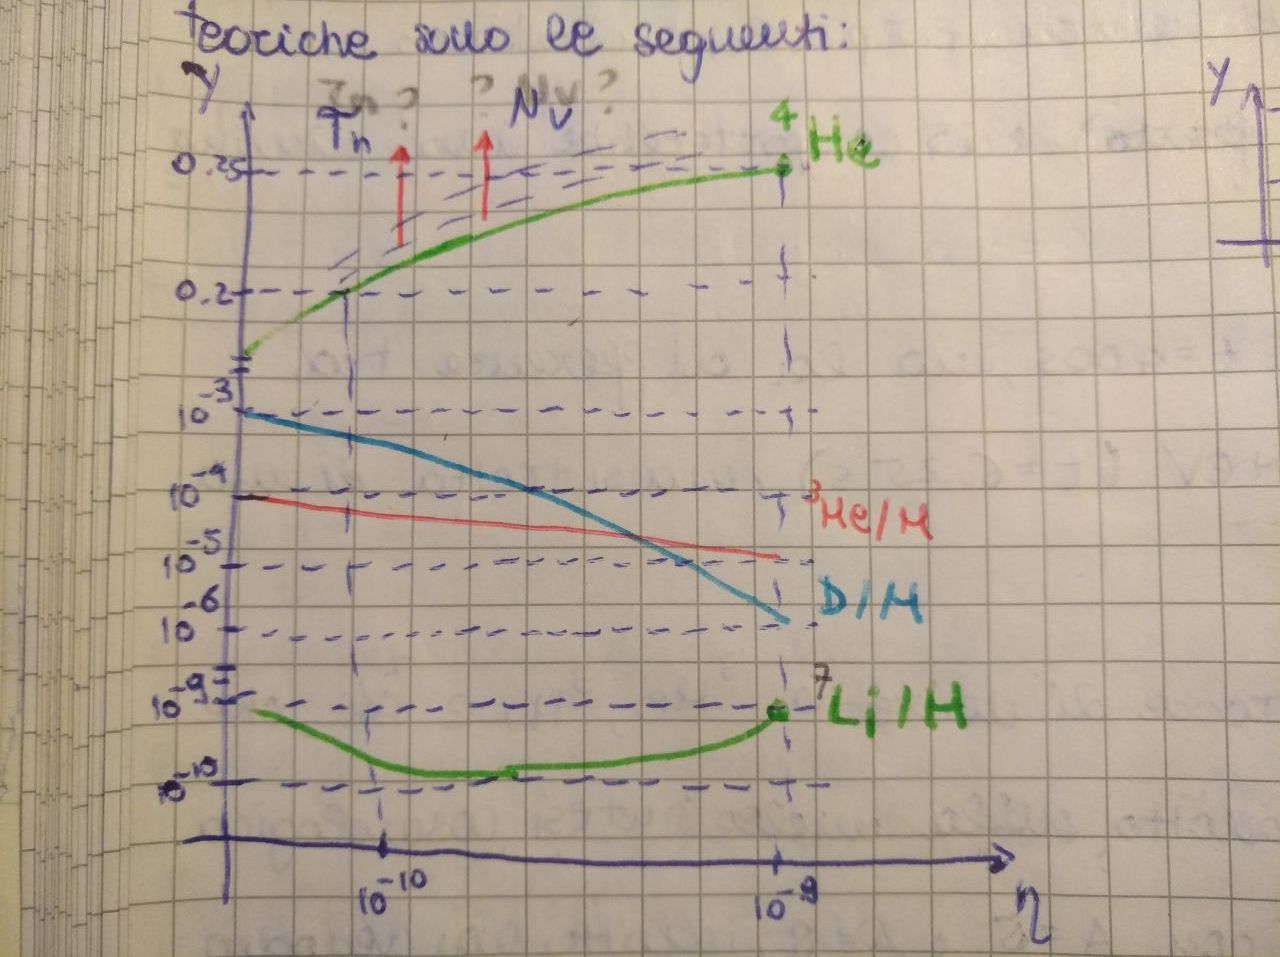 teoriche sono le seguenti:
Y
Tn ? ? Nν ?
Tn Nν
⁴He
Y
0.25
0.2
10⁻³
10⁻⁴
³He/H
10⁻⁵
D/H
10⁻⁶
10⁻⁹
⁷Li/H
10⁻¹⁰
10⁻¹⁰
10⁻⁹
η